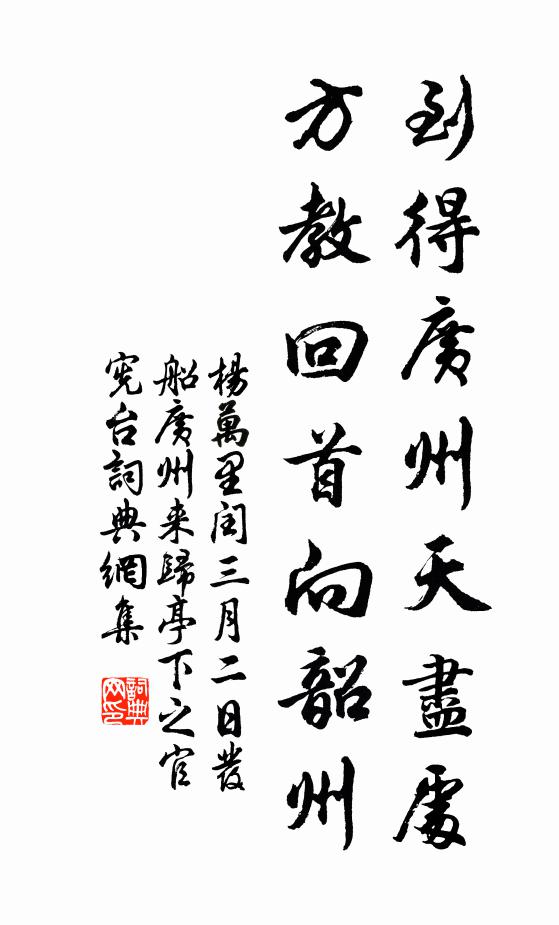 到得廣州天盡處
方教回首向韶州
楊萬里閏三月二日發
船廣州来歸亭下之官
憲台詞典網集
詞典网印